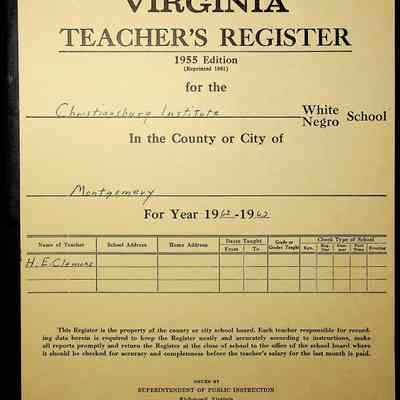 VIRGINIA
TEACHER'S REGISTER
1955 Edition
(Reprinted 1961)
for the
Christiansburg Institute White Negro School
In the County or City of
Montgomery
For Year 1962-1962
Name of Teacher School Address Home Address Dates Taught From To Grade or Grades Taught Check Type of School Kgn. Reg. Day Sum- mer Part Time Evening
H. E. Clemons
This Register is the property of the county or city school board. Each teacher responsible for record-
ing data herein is required to keep the Register neatly and accurately according to instructions, make
all reports promptly and return the Register at the close of school to the office of the school board where
it should be checked for accuracy and completeness before the teacher's salary for the last month is paid.
ISSUED BY
SUPERINTENDENT OF PUBLIC INSTRUCTION
Richmond, Virginia